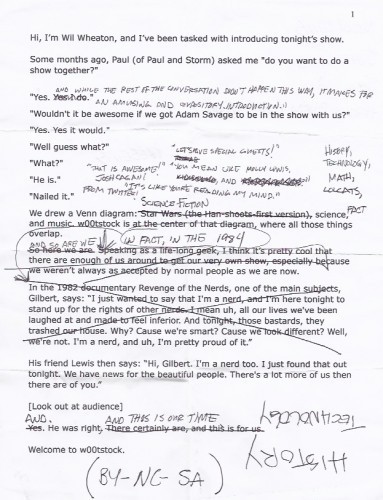 1
Hi, I'm Wil Wheaton, and I've been tasked with introducing tonight's show.
Some months ago, Paul (of Paul and Storm) asked me "do you want to do a
show together?"
AND WHILE THE REST OF THE CONVERSATION DIDN'T HAPPEN THIS WAY, IT MAKES FOR
"Yes. Yes I do."
AN AMUSING AND EXPOSITORY INTRODUCTION."
"Wouldn't it be awesome if we got Adam Savage to be in the show with us?"
"Yes. Yes it would."
"Well guess what?"
"LET'S HAVE SPECIAL GUESTS!"
"What?"
"YOU MEAN LIKE MOLLY LEWIS,
"THAT IS AWESOME"
"He is."
JOSH CAGAN! AND
"IT'S LIKE YOU'RE READING MY MIND."
"Nailed it."
FROM TWITTER!
HISTORY,
TECHNOLOGY,
MATH,
LOLCATS,
SCIENCE FICTION
FACT
We drew a Venn diagram: Star Wars (the Han-shoots-first version), science,
and music. w00tstock is at the center of that diagram, where all those things
overlap.
AND SO ARE WE
IN FACT, IN THE 1984
So here we are. Speaking as a life-long geek, I think it's pretty cool that
there are enough of us around to get our very own show, especially because
we weren't always as accepted by normal people as we are now.
In the 1982 documentary Revenge of the Nerds, one of the main subjects,
Gilbert, says: "I just wanted to say that I'm a nerd, and I'm here tonight to
stand up for the rights of other nerds. I mean uh, all our lives we've been
laughed at and made to feel inferior. And tonight, those bastards, they
trashed our house. Why? Cause we're smart? Cause we look different? Well,
we're not. I'm a nerd, and uh, I'm pretty proud of it."
His friend Lewis then says: "Hi, Gilbert. I'm a nerd too. I just found that out
tonight. We have news for the beautiful people. There's a lot more of us then
there are of you."
[Look out at audience]
AND. AND THIS IS OUR TIME
Yes. He was right, There certainly are, and this is for us.
Welcome to w00tstock.
TECHNOLOGY
HISTORY
(BY-NC-SA)